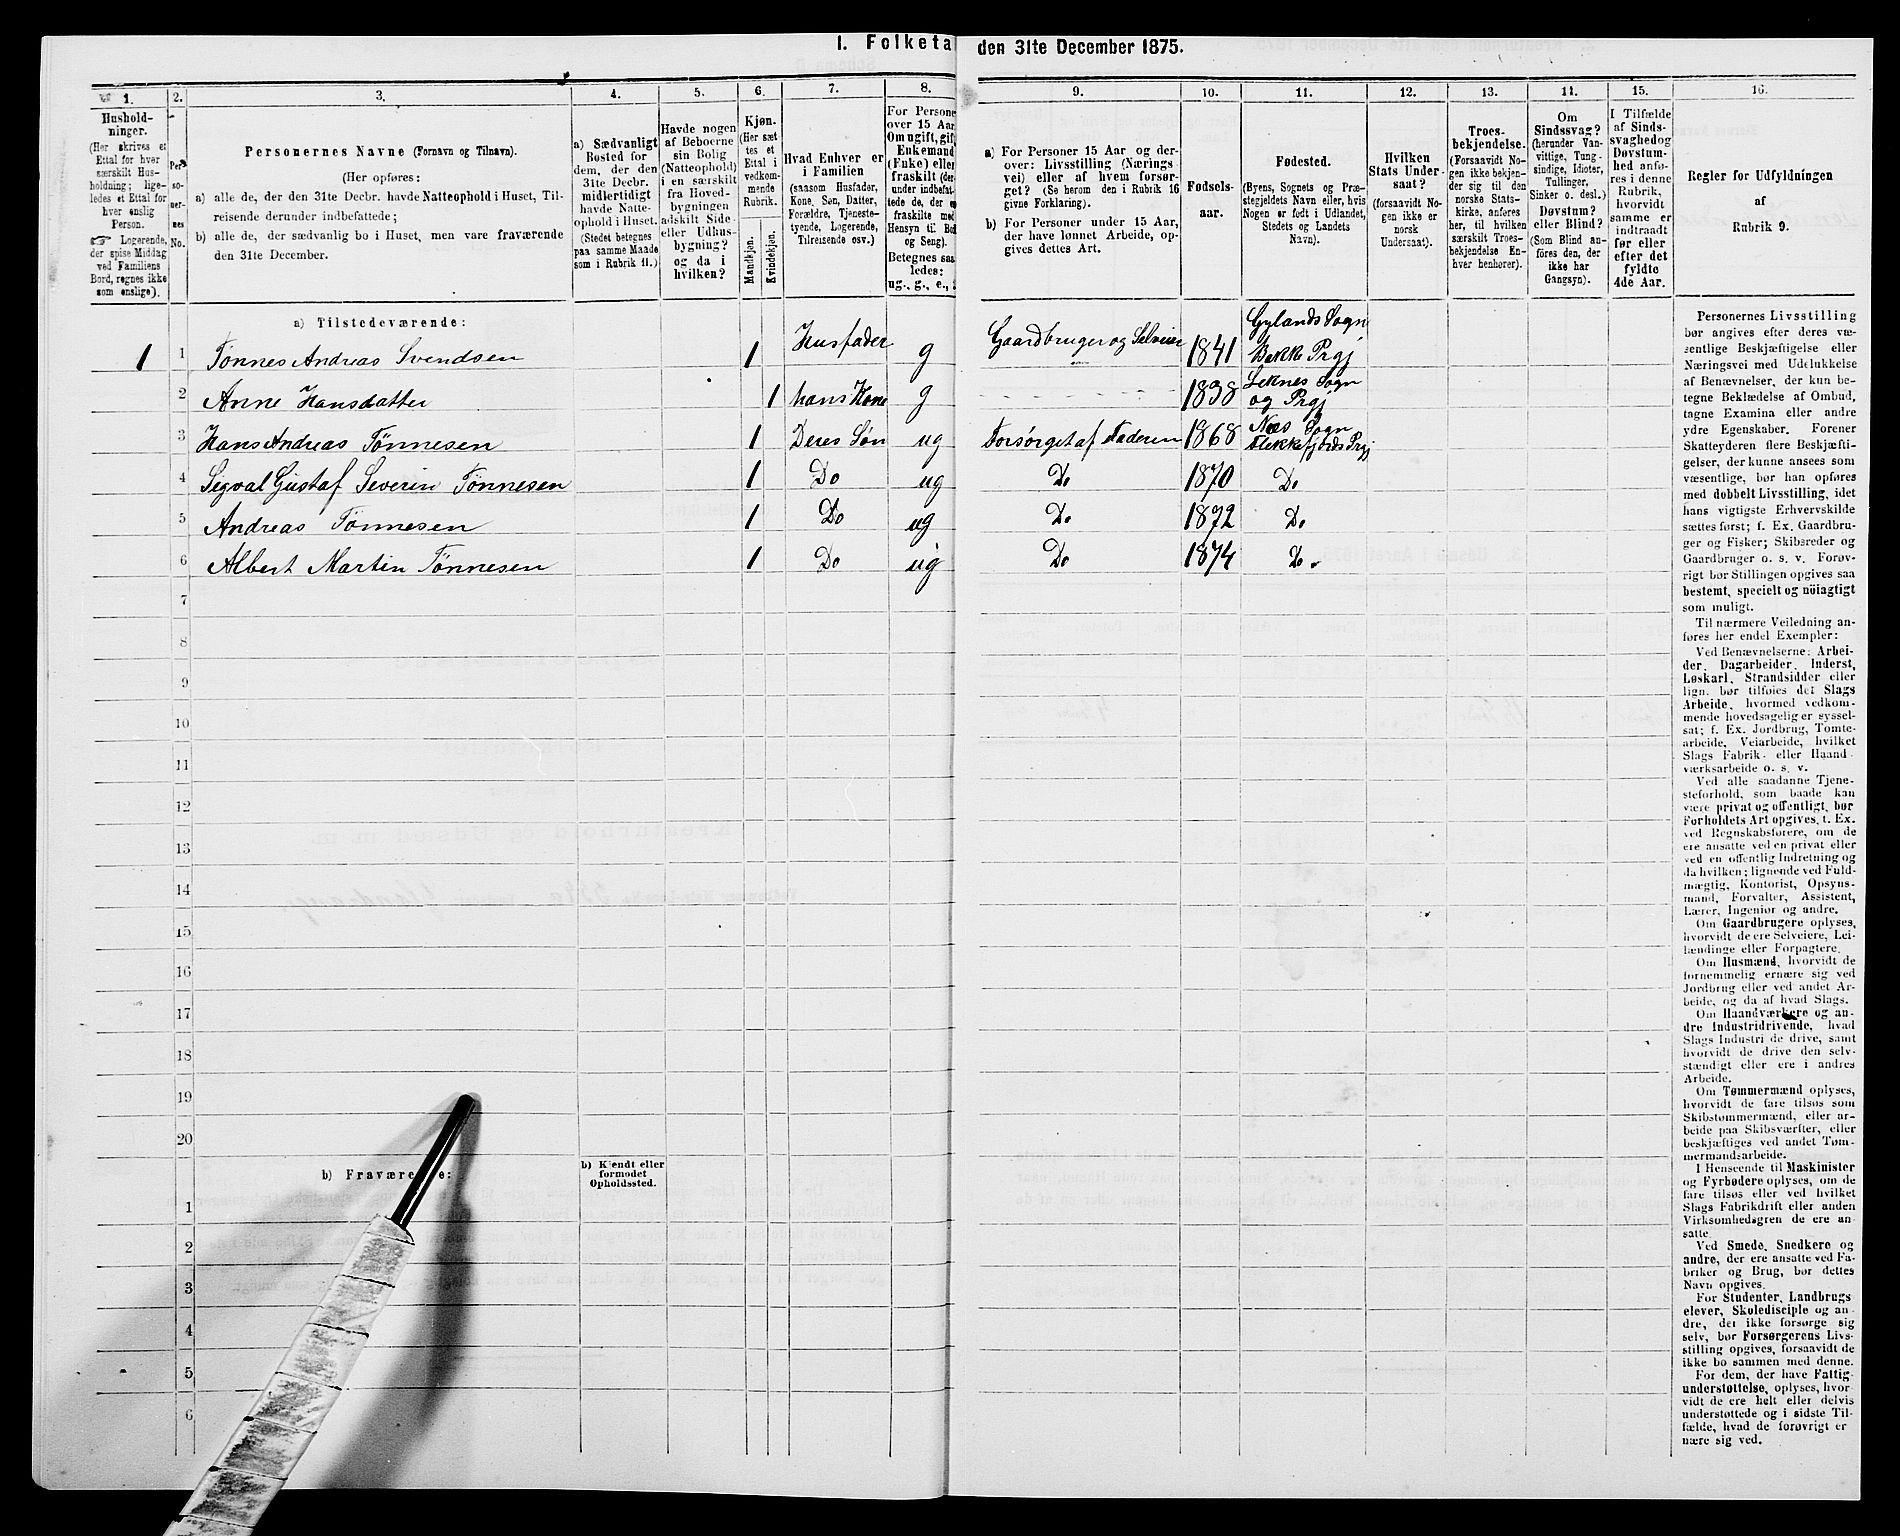 I. Folketa den 31te December 1875.
1. 2. 3. 4. 5. 6. 7. 8. 9. 10. 11. 12. 13. 14. 15. 16.
Hushold-
ninger.
(Her skrives et
Ettal for hver
særskilt Hus-
holdning; lige-
ledes et Ettal for
hver enslig
Person.
☞ Logerende,
der spise Middag
ved Familiens
Bord, regnes ikke
som enslige).
Per-
so-
ner-
nes
No.
Personernes Navne (Fornavn og Tilnavn).
(Her opføres:
a) alle de, der den 31te Decbr. havde Natteophold i Huset, Til-
reisende derunder indbefattede;
b) alle de, der sædvanlig bo i Huset, men vare fraværende
den 31te December.
a) Sædvanligt
Bosted for
dem, der den
31te Decbr.
midlertidigt
havde Natte-
ophold i Huset.
(Stedet betegnes
paa samme Maade
som i Rubrik 11.)
Havde nogen
af Beboerne
sin Bolig
(Natteophold)
i en særskilt
fra Hoved-
bygningen
adskilt Side-
eller Udhus-
bygning?
og da i
hvilken?
Kjøn.
(Her sæt
tes et
Ettal i
vedkom-
mende
Rubrik.
Mandkjøn.
Kvindekjøn.
Hvad Enhver er
i Familien
(saasom Husfader,
Kone, Søn, Datter,
Forældre, Tjeneste-
tyende, Logerende,
Tilreisende osv.)
For Persone
over 15 Aar
Om ugift, gift
Enkemand
(Enke) eller
fraskilt (der
under indbefat-
tede de, der e
fraskilte med
Hensyn til Bo
og Seng).
Betegnes saa
ledes:
ug., g., e., f
a) For Personer 15 Aar og der-
over: Livsstilling (Nærings
vei) eller af hvem forsør-
get? (Se herom den i Rubrik 16
givne Forklaring).
b) For Personer under 15 Aar,
der have lønnet Arbeide, op-
gives dettes Art.
Fødsels-
aar.
Fødested.
(Byens, Sognets og Præ-
stegjeldets Navn eller, hvis
Nogen er født i Udlandet,
Stedets og Landets
Navn).
Hvilken
Stats Under-
saat?
(forsaavidt No-
gen ikke er
norsk
Undersaat).
Troes-
bekjendelse.
(Forsaavidt No-
gen ikke bekjen-
der sig til den
norske Stats-
kirke, anføres
her, til hvilken
særskilt Troes-
bekjendelse En-
hver henhører).
Om
Sindssvag?
(herunder Van-
vittige, Tung-
sindige, Idioter,
Tullinger,
Sinker o. desl.)
Døvstum?
eller Blind?
(Som Blind an-
føres den, der
ikke har
Gangsyn).
I Tilfælde
af Sinds-
svaghed og
Døvstum-
hed anfø-
res i denne
Rubrik,
hvorvidt
samme er
indtraadt
før eller
efter det
fyldte
4de Aar.
Regler for Udfyldningen
af
Rubrik 9.
a) Tilstedeværende:
1 1 Tønnes Andreas Svendsen 1 Husfader g Gaardbruger og Selveier 1841 Gylands Sogn Bakke Prgj
2 Anne Hansdatter 1 hans Kone g 1838 Leknes Sogn og Prgj
3 Hans Andreas Tønnesen 1 Deres Søn ug Forsørget af Faderen 1868 Næs Sogn Flekkefjords Prgj
4 Segval Gustaf Severin Tønnesen 1 Do ug Do 1870 Do
5 Andreas Tønnesen 1 Do ug Do 1872 Do
6 Albert Martin Tønnesen 1 Do ug Do 1874 Do
7
8
9
10
11
12
13
14
15
16
17
18
19
20
b) Fraværende:
b) Kjendt eller
formodet
Opholdssted.
1
2
3
4
5
6
Personernes Livsstilling
bør angives efter deres væ-
sentlige Beskjæftigelse eller
Næringsvei med Udelukkelse
af Benævnelser, der kun be-
tegne Beklædelse af Ombud,
tagne Examina eller andre
ydre Egenskaber. Forener
Skatteyderen flere Beskjæfti-
gelser, der kunne ansees som
væsentlige, bør han opføres
med dobbelt Livsstilling, idet
hans vigtigste Erhvervskilde
sættes først; f. Ex. Gaardbru-
ger og Fisker; Skibsreder og
Gaardbruger o. s. v. Forøv-
rigt bør Stillingen opgives saa
bestemt, specielt og nöiagtigt
som muligt.
Til nærmere Veiledning an-
føres her endel Exempler:
Ved Benævnelserne: Arbei-
der, Dagarbeider, Inderst,
Løskarl, Strandsidder eller
lign. bør tilføies det Slags
Arbeide, hvormed vedkom-
mende hovedsagelig er syssel-
sat; f. Ex. Jordbrug, Tomte-
arbeide, Veiarbeide, hvilket
Slags Fabrik- eller Haand
værksarbeide o. s. v.
Ved alle saadanne Tjene-
steforhold, som baade kan
være privat og offentligt, bør
Forholdets Art opgives, t. Ex.
ved Regnskabsførere, om de
ere ansatte ved en privat eller
ved en offentlig Indretning og
da hvilken; lignende ved Fuld-
mægtig, Kontorist, Opsyns-
mand, Forvalter, Assistent,
Lærer, Ingeniør og andre.
Om Gaardbrugere oplyses,
hvorvidt de ere Selveiere, Lei-
lændinge eller Forpagtere.
Om Husmænd, hvorvidt de
fornemmelig ernære sig ved
Jordbrug eller ved andet Ar-
beide, og da af hvad Slags.
Om Haandværkere og an-
dre Industridrivende, hvad
Slags Industri de drive, samt
hvorvidt de drive den selv-
stændigt eller ere i andres
Arbeide.
Om Tømmermænd oplyses,
hvorvidt de fare tilsøs som
Skibstømmermænd, eller ar-
beide paa Skibsværfter, eller
beskjæftiges ved andet Tøm-
mermandsarbeide.
I Henseende til Maskinister
og Fyrbødere oplyses, om de
fare tilsøs eller ved hvilket
Slags Fabrikdrift eller anden
Virksomhedsgren de ere an-
satte.
Ved Smede, Snedkere og
andre, der ere ansatte ved Fa-
briker og Brug, bør dettes
Navn opgives.
For Studenter, Landbrugs
elever, Skoledisciple og an-
dre, der ikke forsørge sig
selv, bør Forsørgerens Livs-
stilling opgives, forsaavidt de
ikke bo sammen med denne.
For dem, der have Fattig-
understøttelse, oplyses, hvor-
vidt de ere helt eller delvis
understøttede og i sidste Til-
fælde, hvad de forøvrigt er
nære sig ved.